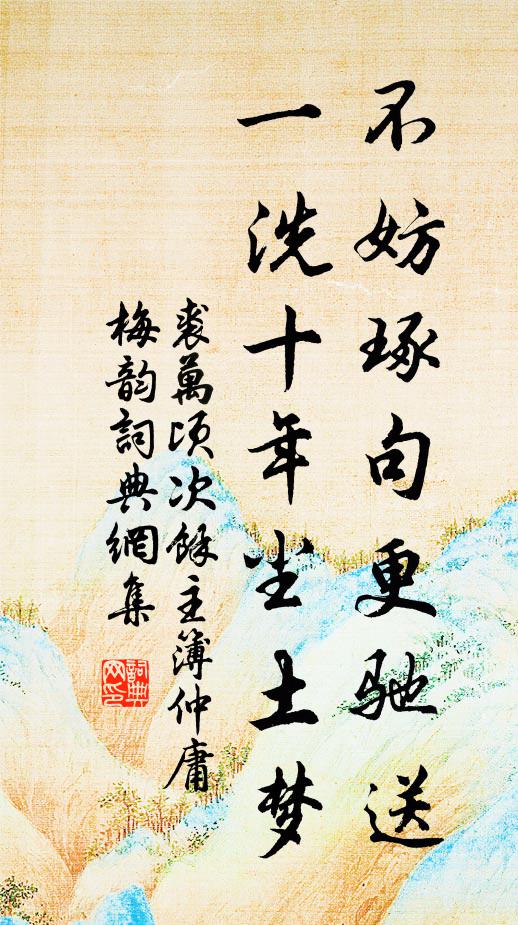 不妨琢句更驰送
一洗十年尘土梦
裘萬頃次餘主簿仲庸
梅韵詞典網集
詞典
网印